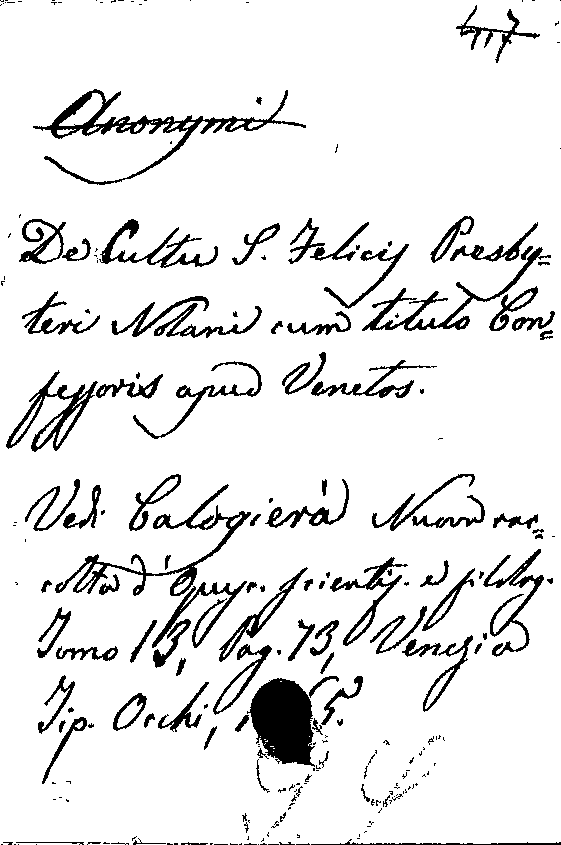 417
Anonymi
De Cultu S. Felicis Presby=
teri Nolani cum titulo Con=
fessoris apud Venetos.
Vedi Calogierà Nuova rac=
colta d' Opusc. scientif. e filolog.
Tomo 13, Pag. 73, Venezia
Tip. Occhi, 5.